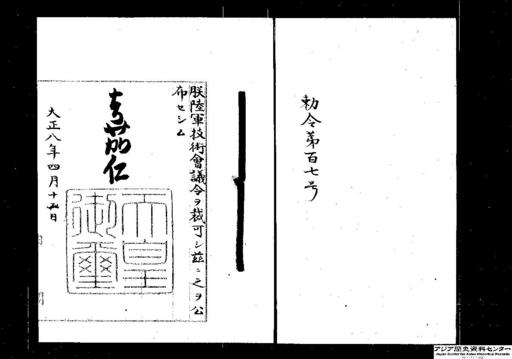 勅令第百七号
朕陸軍技術會議令ヲ裁可シ茲ニ之ヲ公
布セシム
嘉仁
天皇御璽
大正八年四月十日
アジア歴史資料センター
Japan Center for Asian Historical Records